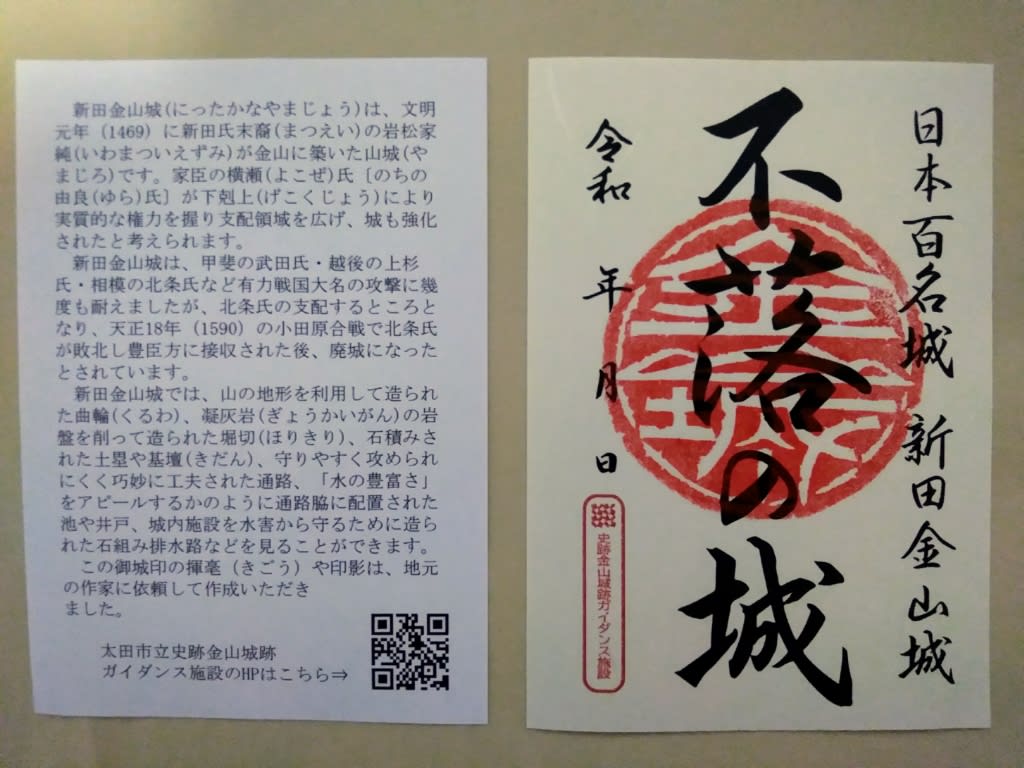 新田金山城(にったかなやまじょう)は、文明
元年（1469）に新田氏末裔(まつえい)の岩松家
純(いわまついえずみ)が金山に築いた山城(や
まじろ)です。家臣の横瀬(よこぜ)氏〔のちの
由良(ゆら)氏〕が下剋上(げこくじょう)により
実質的な権力を握り支配領域を広げ、城も強化
されたと考えられます。
新田金山城は、甲斐の武田氏・越後の上杉
氏・相模の北条氏など有力戦国大名の攻撃に幾
度も耐えましたが、北条氏の支配するところと
なり、天正18年（1590）の小田原合戦で北条氏
が敗北し豊臣方に接収された後、廃城になった
とされています。
新田金山城では、山の地形を利用して造られ
た曲輪(くるわ)、凝灰岩(ぎょうかいがん)の岩
盤を削って造られた堀切(ほりきり)、石積みさ
れた土塁や基壇(きだん)、守りやすく攻められ
にくく巧妙に工夫された通路、「水の豊富さ」
をアピールするかのように通路脇に配置された
池や井戸、城内施設を水害から守るために造ら
れた石組み排水路などを見ることができます。
この御城印の揮毫（きごう）や印影は、地元
の作家に依頼して作成いただき
ました。
太田市立史跡金山城跡
ガイダンス施設のHPはこちら⇒
日本百名城 新田金山城
不落の城
金山城
令和 年 月 日
史跡金山城跡ガイダンス施設